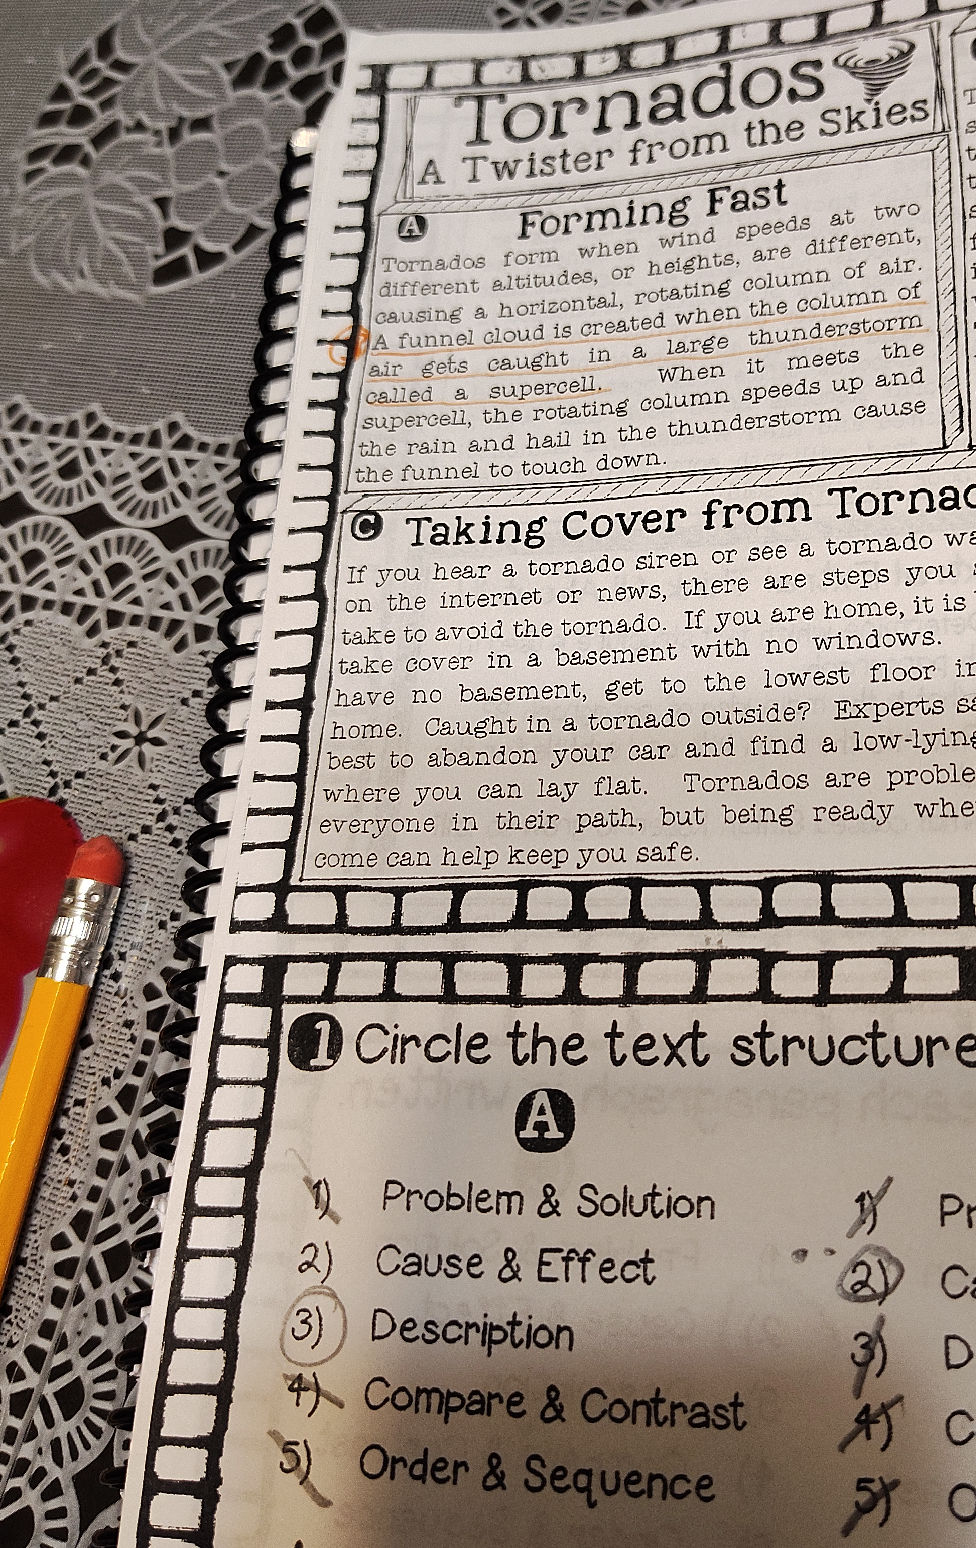 Tornados
A Twister from the Skies
A Forming Fast
Tornados form when wind speeds at two
different altitudes, or heights, are different,
causing a horizontal, rotating column of air.
A funnel cloud is created when the column of
air gets caught in a large thunderstorm
called a supercell. When it meets the
supercell, the rotating column speeds up and
the rain and hail in the thunderstorm cause
the funnel to touch down.
C Taking Cover from Tornad
If you hear a tornado siren or see a tornado wa
on the internet or news, there are steps you
take to avoid the tornado. If you are home, it is
take cover in a basement with no windows.
have no basement, get to the lowest floor in
home. Caught in a tornado outside? Experts sa
best to abandon your car and find a low-lying
where you can lay flat. Tornados are proble
everyone in their path, but being ready whe
come can help keep you safe.
1 Circle the text structure
A
1) Problem & Solution
2) Cause & Effect
3) Description
4) Compare & Contrast
5) Order & Sequence
1) Pr
2) Ca
3) D
4) C
5) O